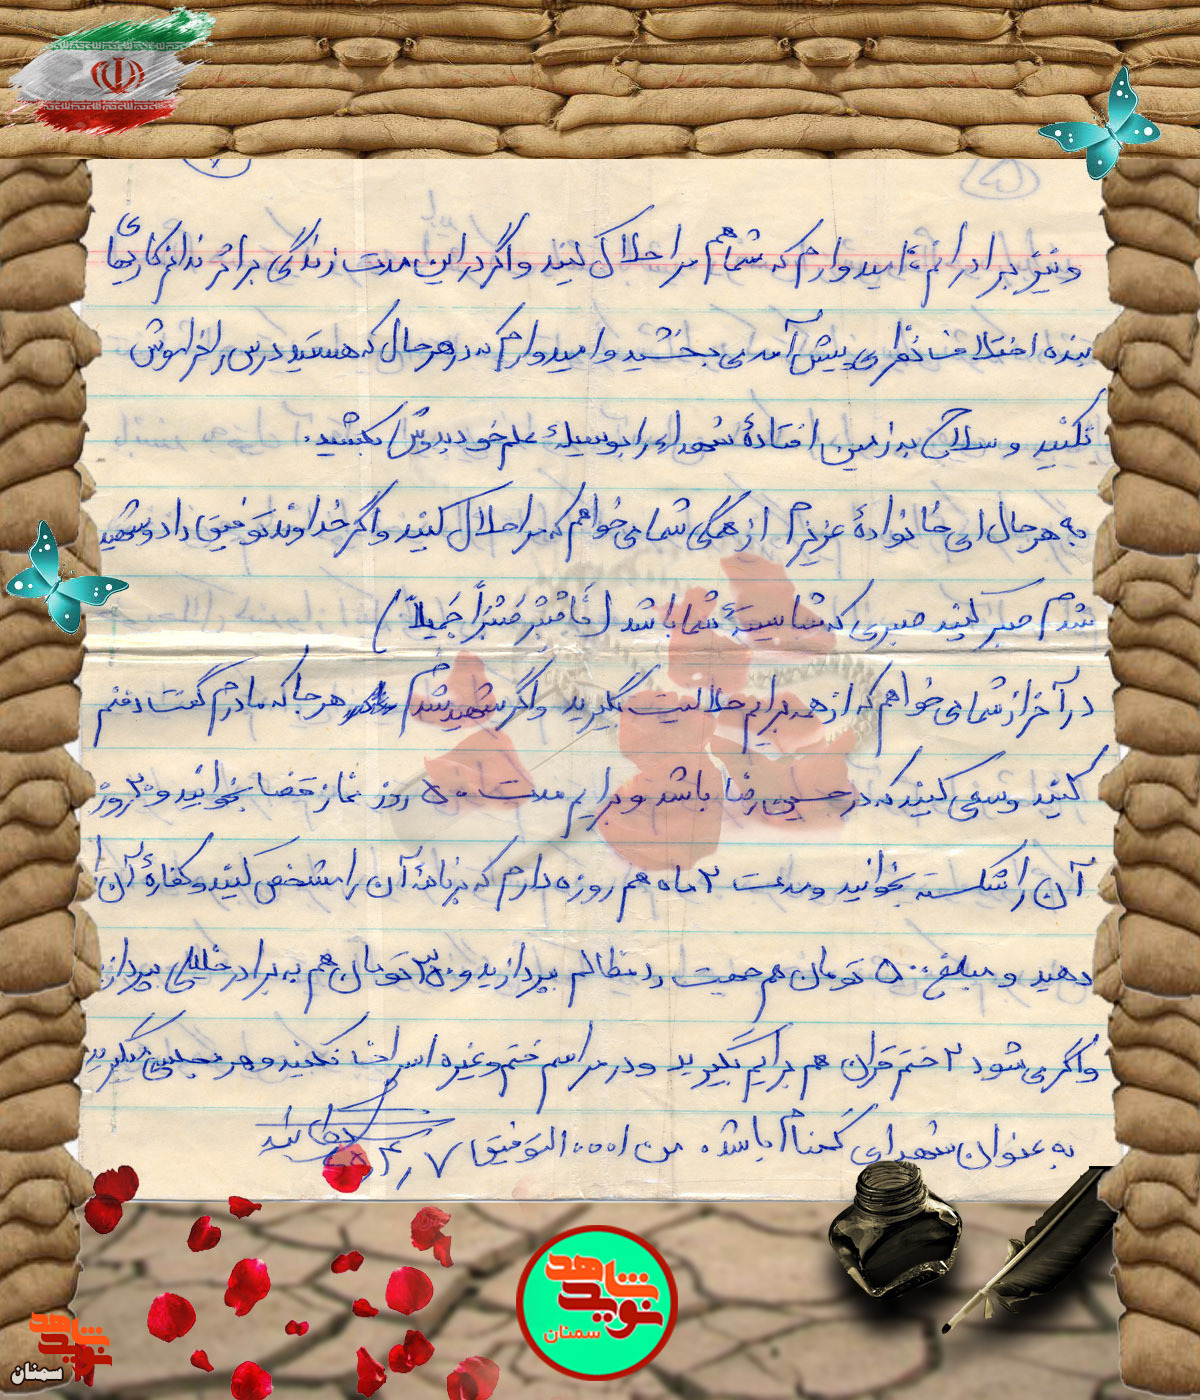 و نیز برادرانم، امیدوارم که شما هم مرا حلال کنید و اگر در این مدت زندگی براثر ندانم کاریهای
بنده اختلاف نظری پیش آمد می بخشید و امیدوارم که در هر حال که هستید درس را فراموش
نکنید و سلاح به زمین افتادهٔ شهداء را بوسیلهٔ علم خود بدوش بکشید.
به هر حال ای خانوادهٔ عزیزم از همگی شما می خواهم که مرا حلال کنید و اگر خداوند توفیق داد و شهید
شدم صبر کنید صبری که شایستهٔ شما باشد (فَاصْبِرْ صَبْرَاً جَمیلاً)
در آخر از شما می خواهم که از همه برایم حلالیت بگیرید و اگر شهید شدم هر جا که مادرم گفت دفنم
کنید و سعی کنید که در حسین رضا باشد و برایم مدت ۵۰ روز نماز قضا بخوانید و ۲۰ روز
آن را شکسته بخوانید و مدت ۲ ماه هم روزه دارم که برنامهٔ آن را مشخص کنید و کفارهٔ آن را
دهید و مبلغ ۵۰۰ تومان هم جهت رد مظالم بپردازید و ۳۵۰ تومان هم به برادر خلیلی بپردازید
و اگر می شود ۲ ختم قرآن هم برایم بگیرید و در مراسم ختم و غیره اسراف نکنید و هر مجلسی بگیرید
به عنوان شهدای گمنام باشد. من ا... التوفیق
شاهد
نوید
سمنان
شاهد
نوید
سمنان